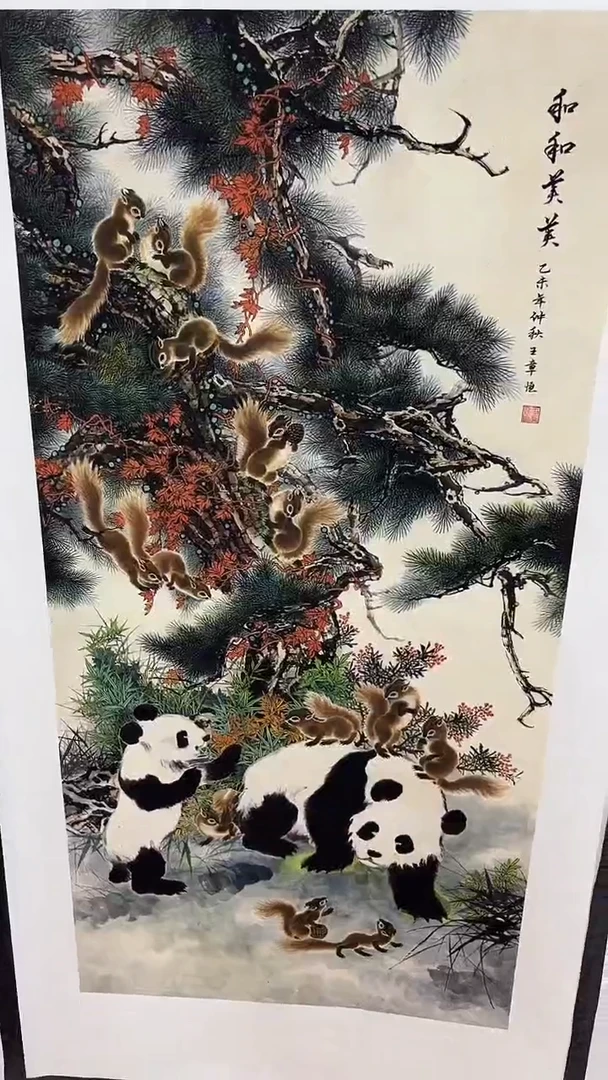 和和美美
乙未年仲秋王章恒